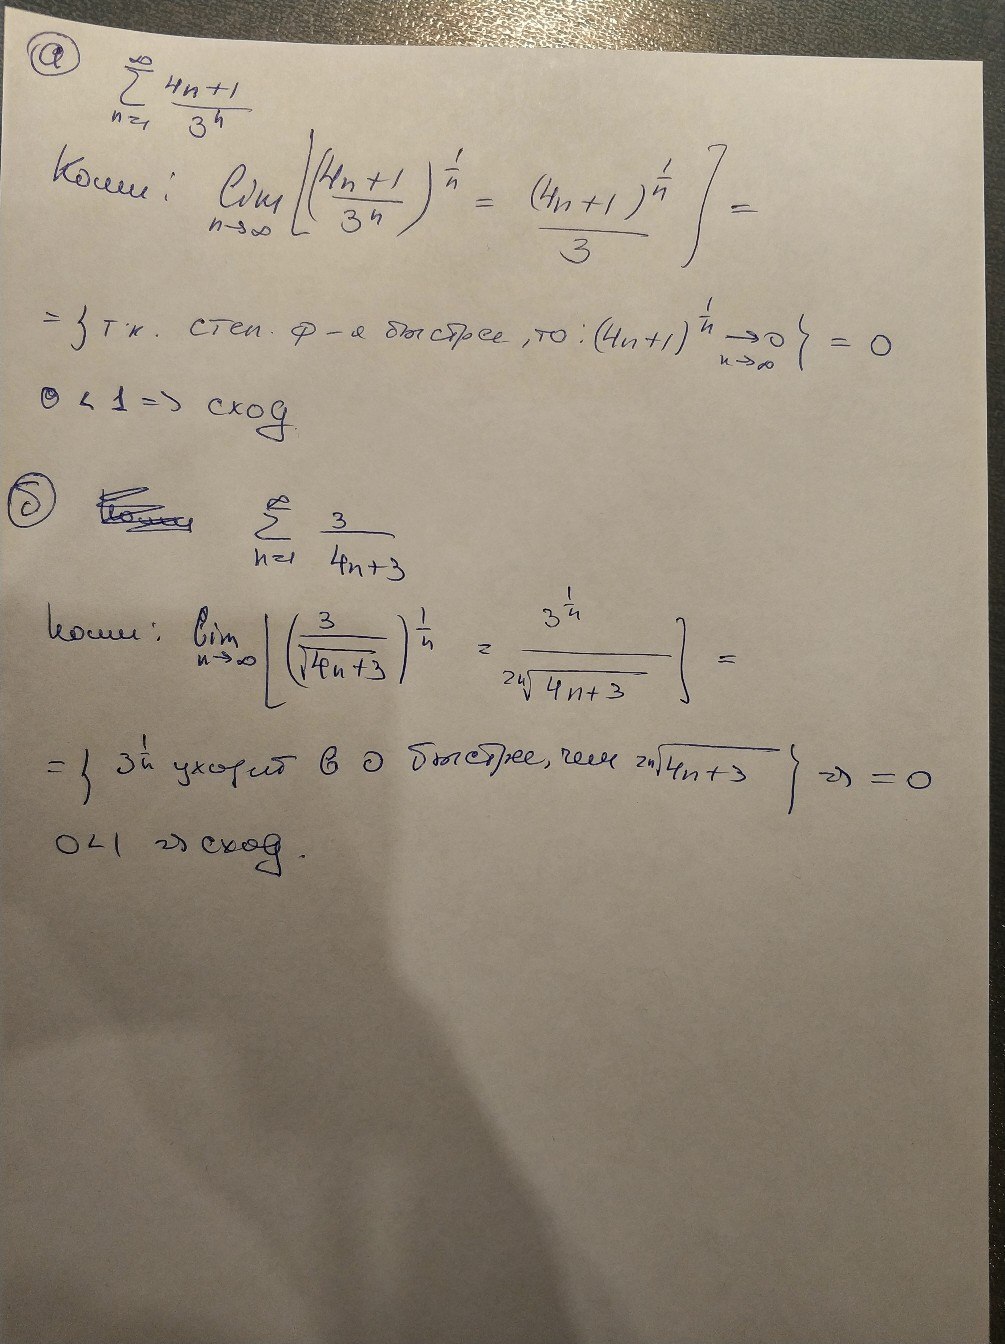 а
∞ Σ n=1 4n+1 / 3^n
Коши: lim n→∞ [(4n+1 / 3^n)^(1/n) = (4n+1)^(1/n) / 3] =
= } т.к. степ. ф-я быстрее, то: (4n+1)^(1/n) →0 n→∞ } = 0
0 < 1 => сход.
б
∞ Σ n=1 3 / 4n+3
Коши: lim n→∞ [(3 / √4n+3)^(1/n) = 3^(1/n) / 2n√4n+3] =
= } 3^(1/n) уходит в 0 быстрее, чем 2n√4n+3 } => = 0
0<1 => сход.